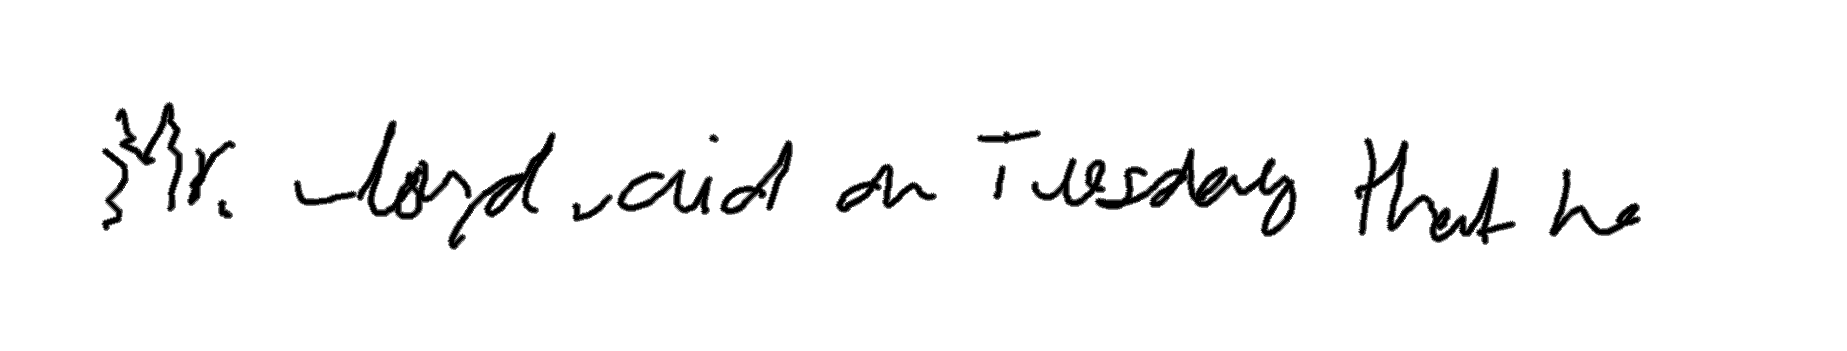 Mr. Lloyd said on Tuesday that he